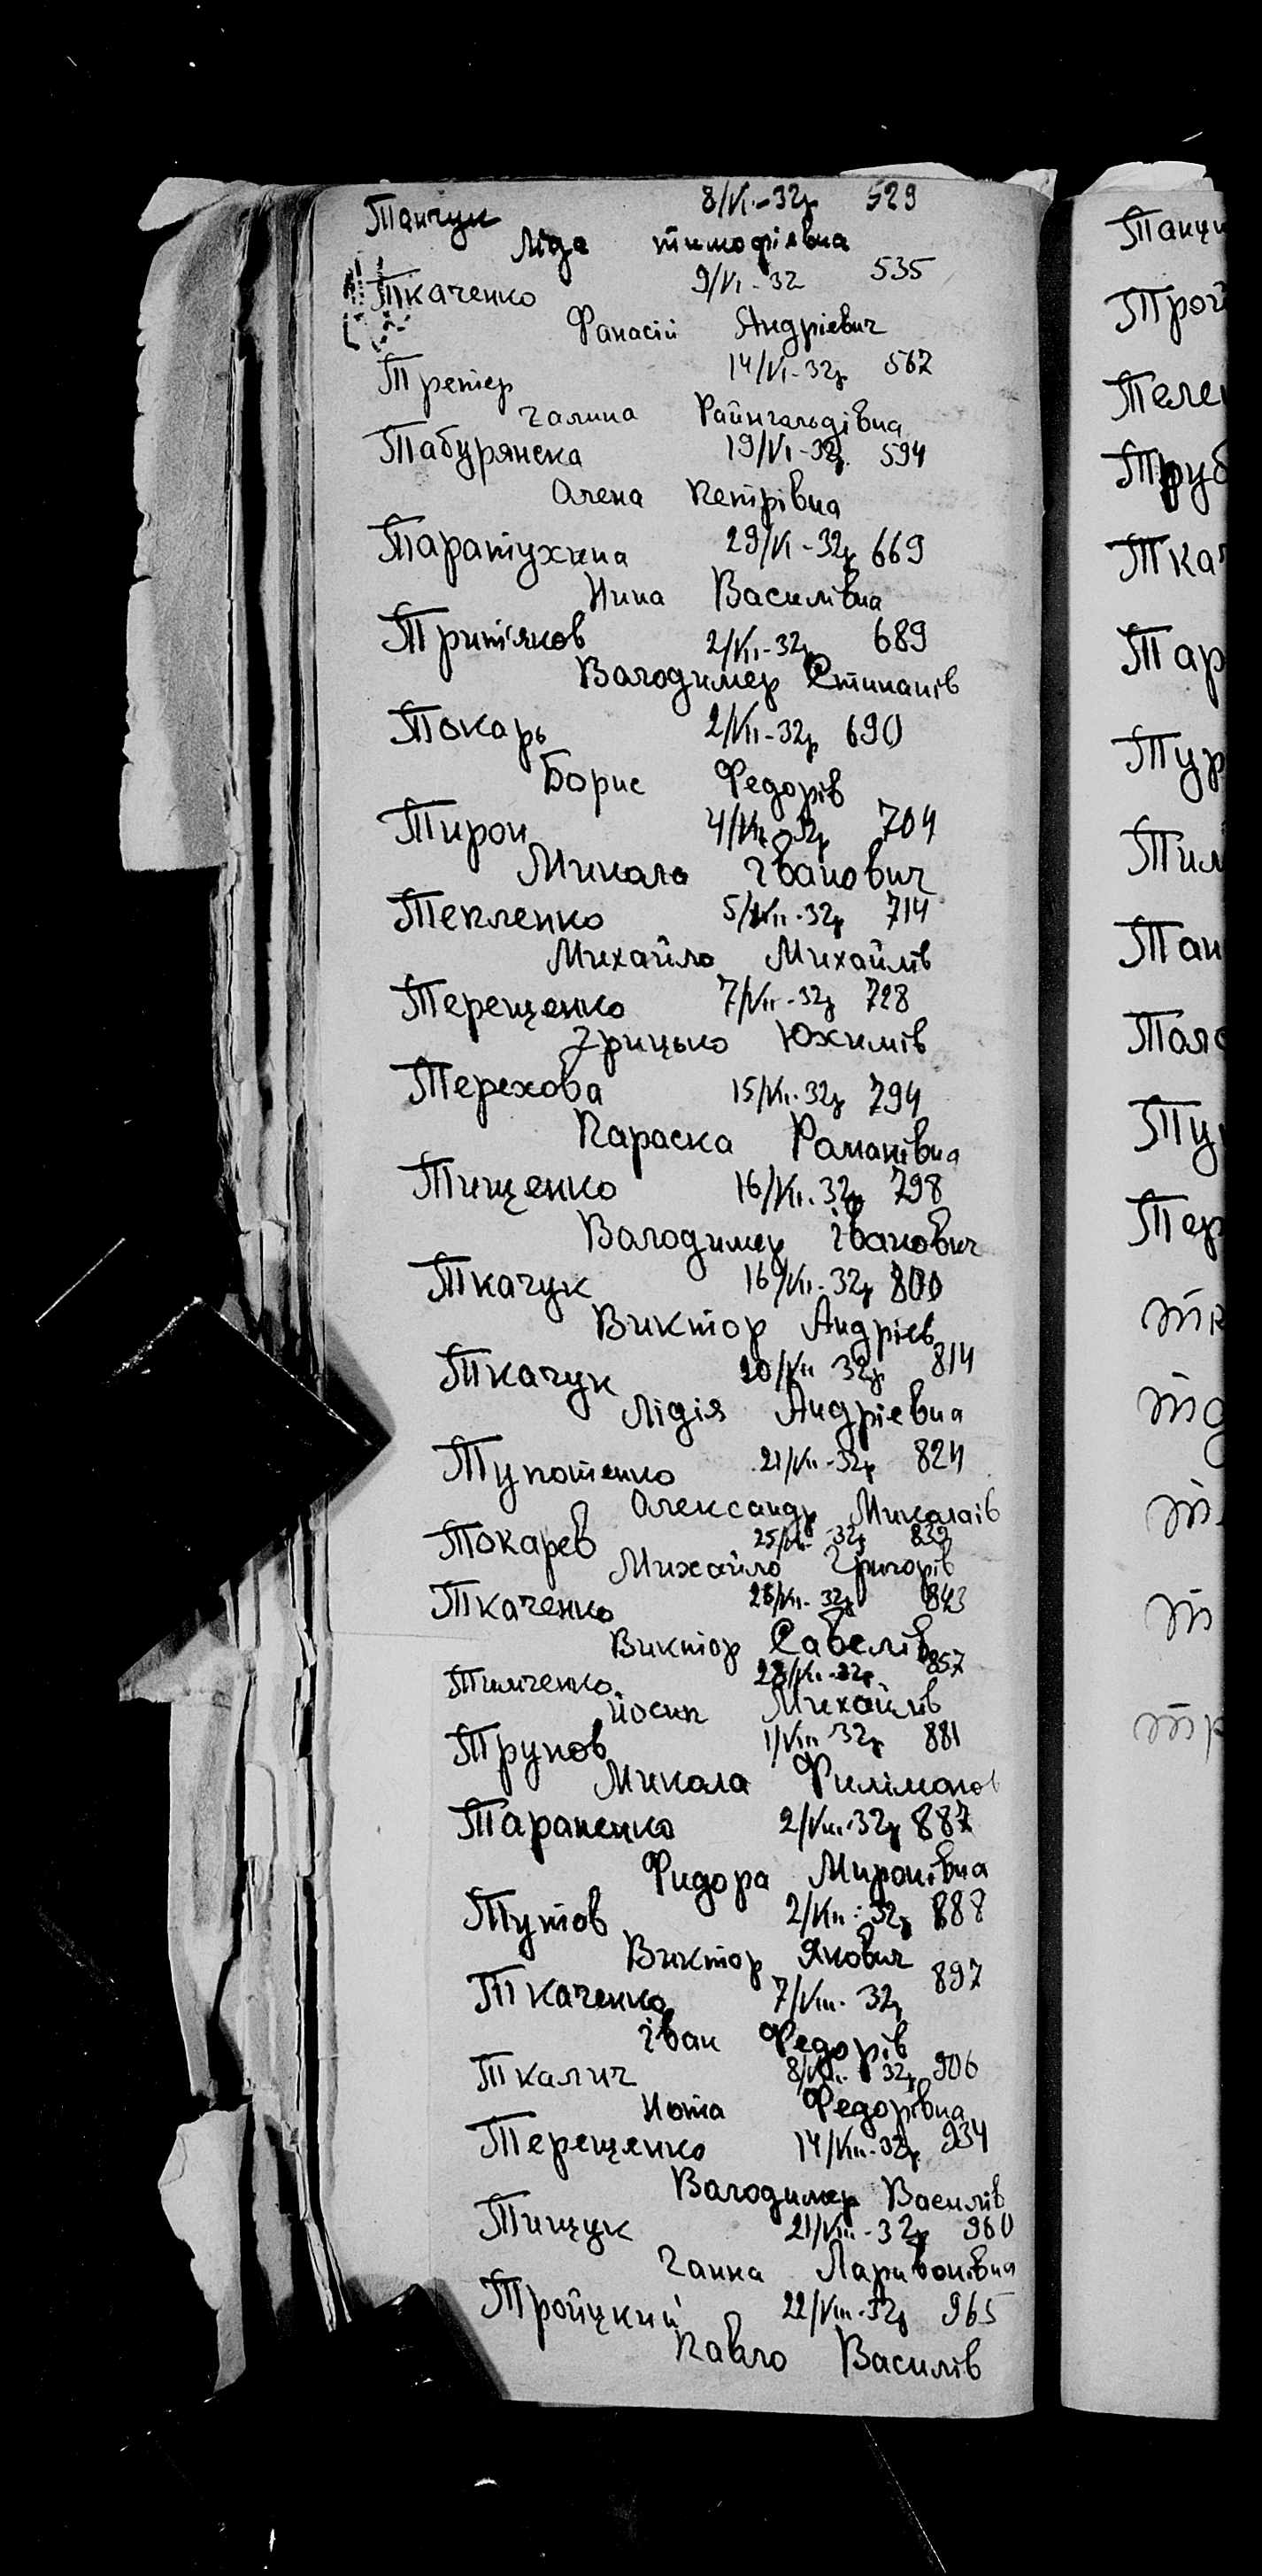 Танчук 8/VI-32р 529
Ліда тимофіівна
Ткаченко 9/VI-32 535
Фанасій Андріевич
Претер 14/VI-32р 567
Галина Райнгольдівна
Табурянска 19/VI-32р. 594
Олена Петрівна
Таратухина 29/VI-32р 669
Нина Василівна
Трит'яков 2/VII-32р 689
Володимер Стипанів
Токарь 2/VII-32р 690
Борис Федорів
Тирон 4/VII-32р 704
Микола Іванович
Тепленко 5/VII-32р 714
Михайло Михайлів
Терещенко 7/VII-32р 728
Грицько Юхимів
Терехова 15/VII-32р 794
Параска Романівна
Тищенко 16/VII.32р 798
Володимер Іванович
Ткачук 16/VII-32р 800
Виктор Андріев
Ткачук 20/VII 32р 814
Лідія Андріевна
Тупотенко 21/VII-32р 824
Олександр Миколаів
Токарев 25/VII-32р 832
Михайло Григорів
Ткаченко 26/VII-32р 843
Виктор Савелів
Тимченко 28/VII-32р 857
Йосип Михайлів
Трунов 1/VIII 32р 881
Микола Филімонов
Тараненко 2/VIII-32р 887
Фидора Миронівна
Тутов 2/VIII-32р 888
Виктор Якович
Ткаченко 7/VIII-32р 897
Іван Федорів
Ткалич 8/VIII-32р 906
Федорівна
Терещенко 14/VIII-32р 934
Володимер Василів
Тищук 21/VIII-32р 960
Ганна Ларивонівна
Тройцкий 22/VIII-32р 965
Павло Василів